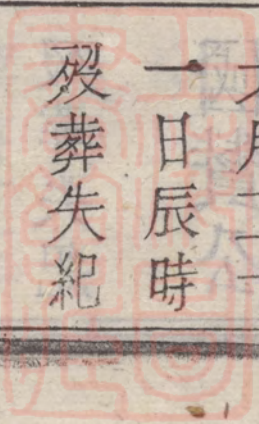 月二十
一日辰時
歿葬失紀